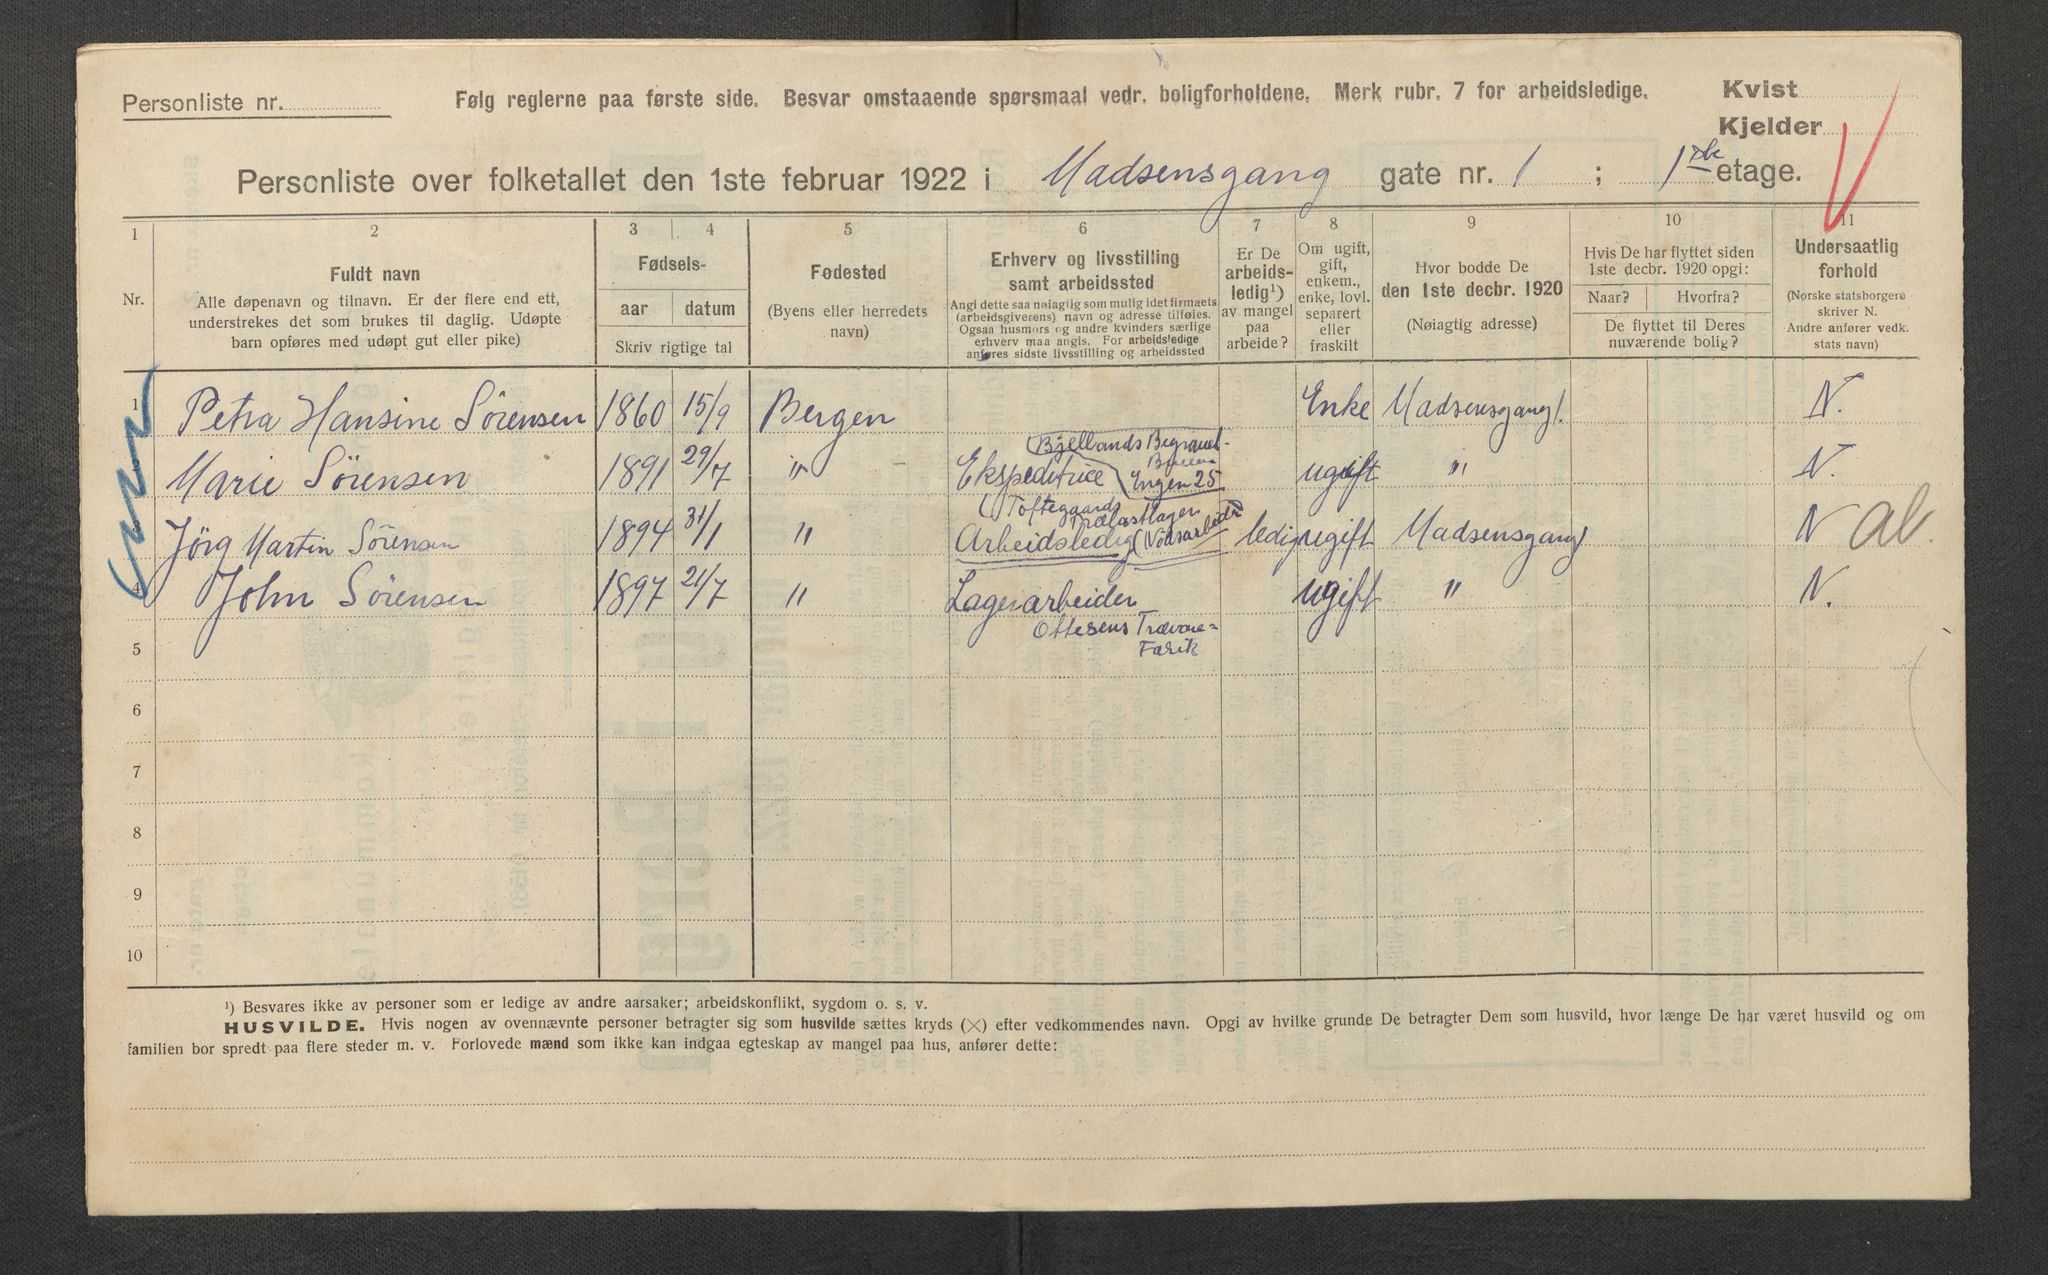 Personliste nr.
Følg reglerne paa første side. Besvar omstaaende spørsmaal vedr. boligforholdene. Merk rubr. 7 for arbeidsledige.
Kvist
Kjelder
Personliste over folketallet den 1ste februar 1922 i Madsensgang gate nr. 1 ; 1ste etage.
1 2 3 4 5 6 7 8 9 10 11
Nr.
Fuldt navn
Alle døpenavn og tilnavn. Er der flere end ett,
understrekes det som brukes til daglig. Udøpte
barn opføres med udøpt gut eller pike)
Fødsels-
aar datum
Skriv rigtige tal
Fødested
(Byens eller herredets
navn)
Erhverv og livsstilling
samt arbeidssted
Angi dette saa nøiagtig som mulig idet firmaets
(arbeidsgiverens) navn og adresse tilføies.
Ogsaa husmors og andre kvinders særlige
erhverv maa angis. For arbeidsledige
anføres sidste livsstilling og arbeidssted
Er De
arbeids-
ledig¹)
av mangel
paa
arbeide?
Om ugift,
gift,
enkem.,
enke, lovl.
separert
eller
fraskilt
Hvor bodde De
den 1ste decbr. 1920
(Nøiagtig adresse)
Hvis De har flyttet siden
1ste decbr. 1920 opgi:
Naar? Hvorfra?
De flyttet til Deres
nuværende bolig?
Undersaatlig
forhold
(Norske statsborgere
skriver N.
Andre anfører vedk.
stats navn)
1 Petra Hansine Sörensen 1860 15/9 Bergen Enke Madsensgang 1. N.
Bjellands Begravel-
Marie Sörensen 1891 29/7 " Ekspeditrice Engen 25 ugift " N.
(Toftegaards
Trælastlager
3 Jörg Martin Sörensen 1894 31/1 " Arbeidsledig (Nödsarbeide) ledig ugift Madsensgang 1 N al.
4 John Sörensen 1897 21/7 " Lagerarbeider ugift " N.
Ottesens Trævare-
Fabrik
5
6
7
8
9
10
¹) Besvares ikke av personer som er ledige av andre aarsaker; arbeidskonflikt, sygdom o. s. v.
HUSVILDE. Hvis nogen av ovennævnte personer betragter sig som husvilde sættes kryds (×) efter vedkommendes navn. Opgi av hvilke grunde De betragter Dem som husvild, hvor længe De har været husvild og om
familien bor spredt paa flere steder m. v. Forlovede mænd som ikke kan indgaa egteskap av mangel paa hus, anfører dette: